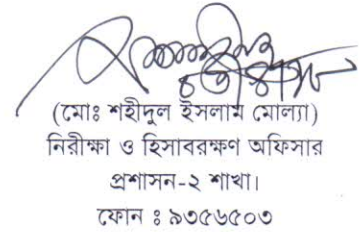 (মোঃ শহীদুল ইসলাম মোল্যা)
নিরীক্ষা ও হিসাবরক্ষণ অফিসার
প্রশাসন-২ শাখা।
ফোন ঃ ৯৩৫৬৫০৩